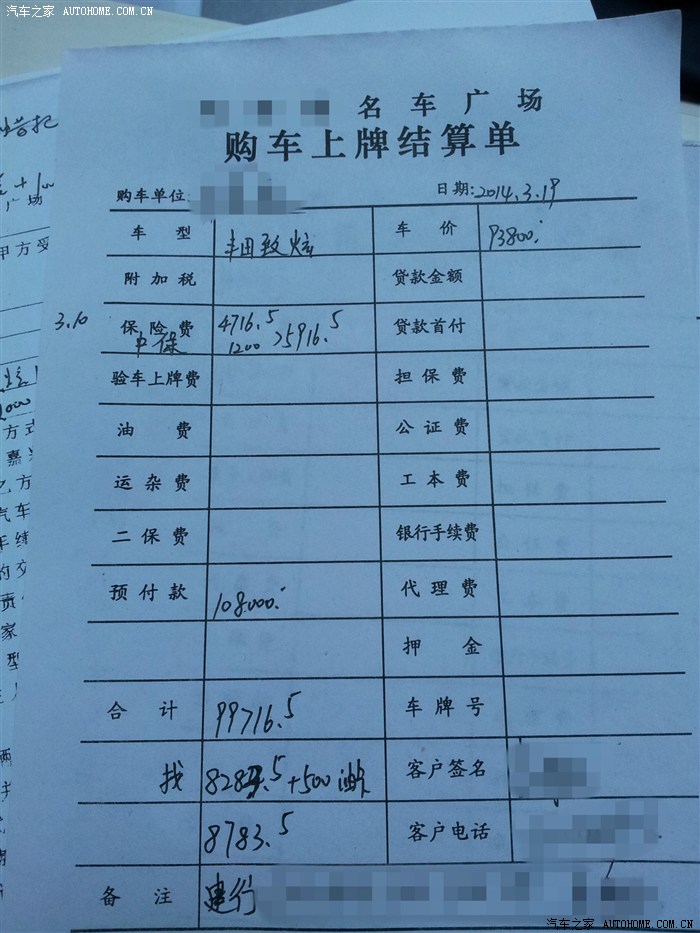 汽车之家 AUTOHOME.COM.CN
名车广场
购车上牌结算单
购车单位: 日期: 2014.3.19
车型 丰田致炫 车价 93800.
附加税 贷款金额
3.10 保险费 4716.5 贷款首付
中保 1200 >5916.5
验车上牌费 担保费
油费 公证费
运杂费 工本费
二保费 银行手续费
预付款 108000. 代理费
押金
合计 99716.5 车牌号
找 8283.5+500油 客户签名
8783.5 客户电话
备注 建行
甲方受
方式
嘉
乙方
汽车
手续
的交
责
家
型
汽车之家 AUTOHOME.COM.CN